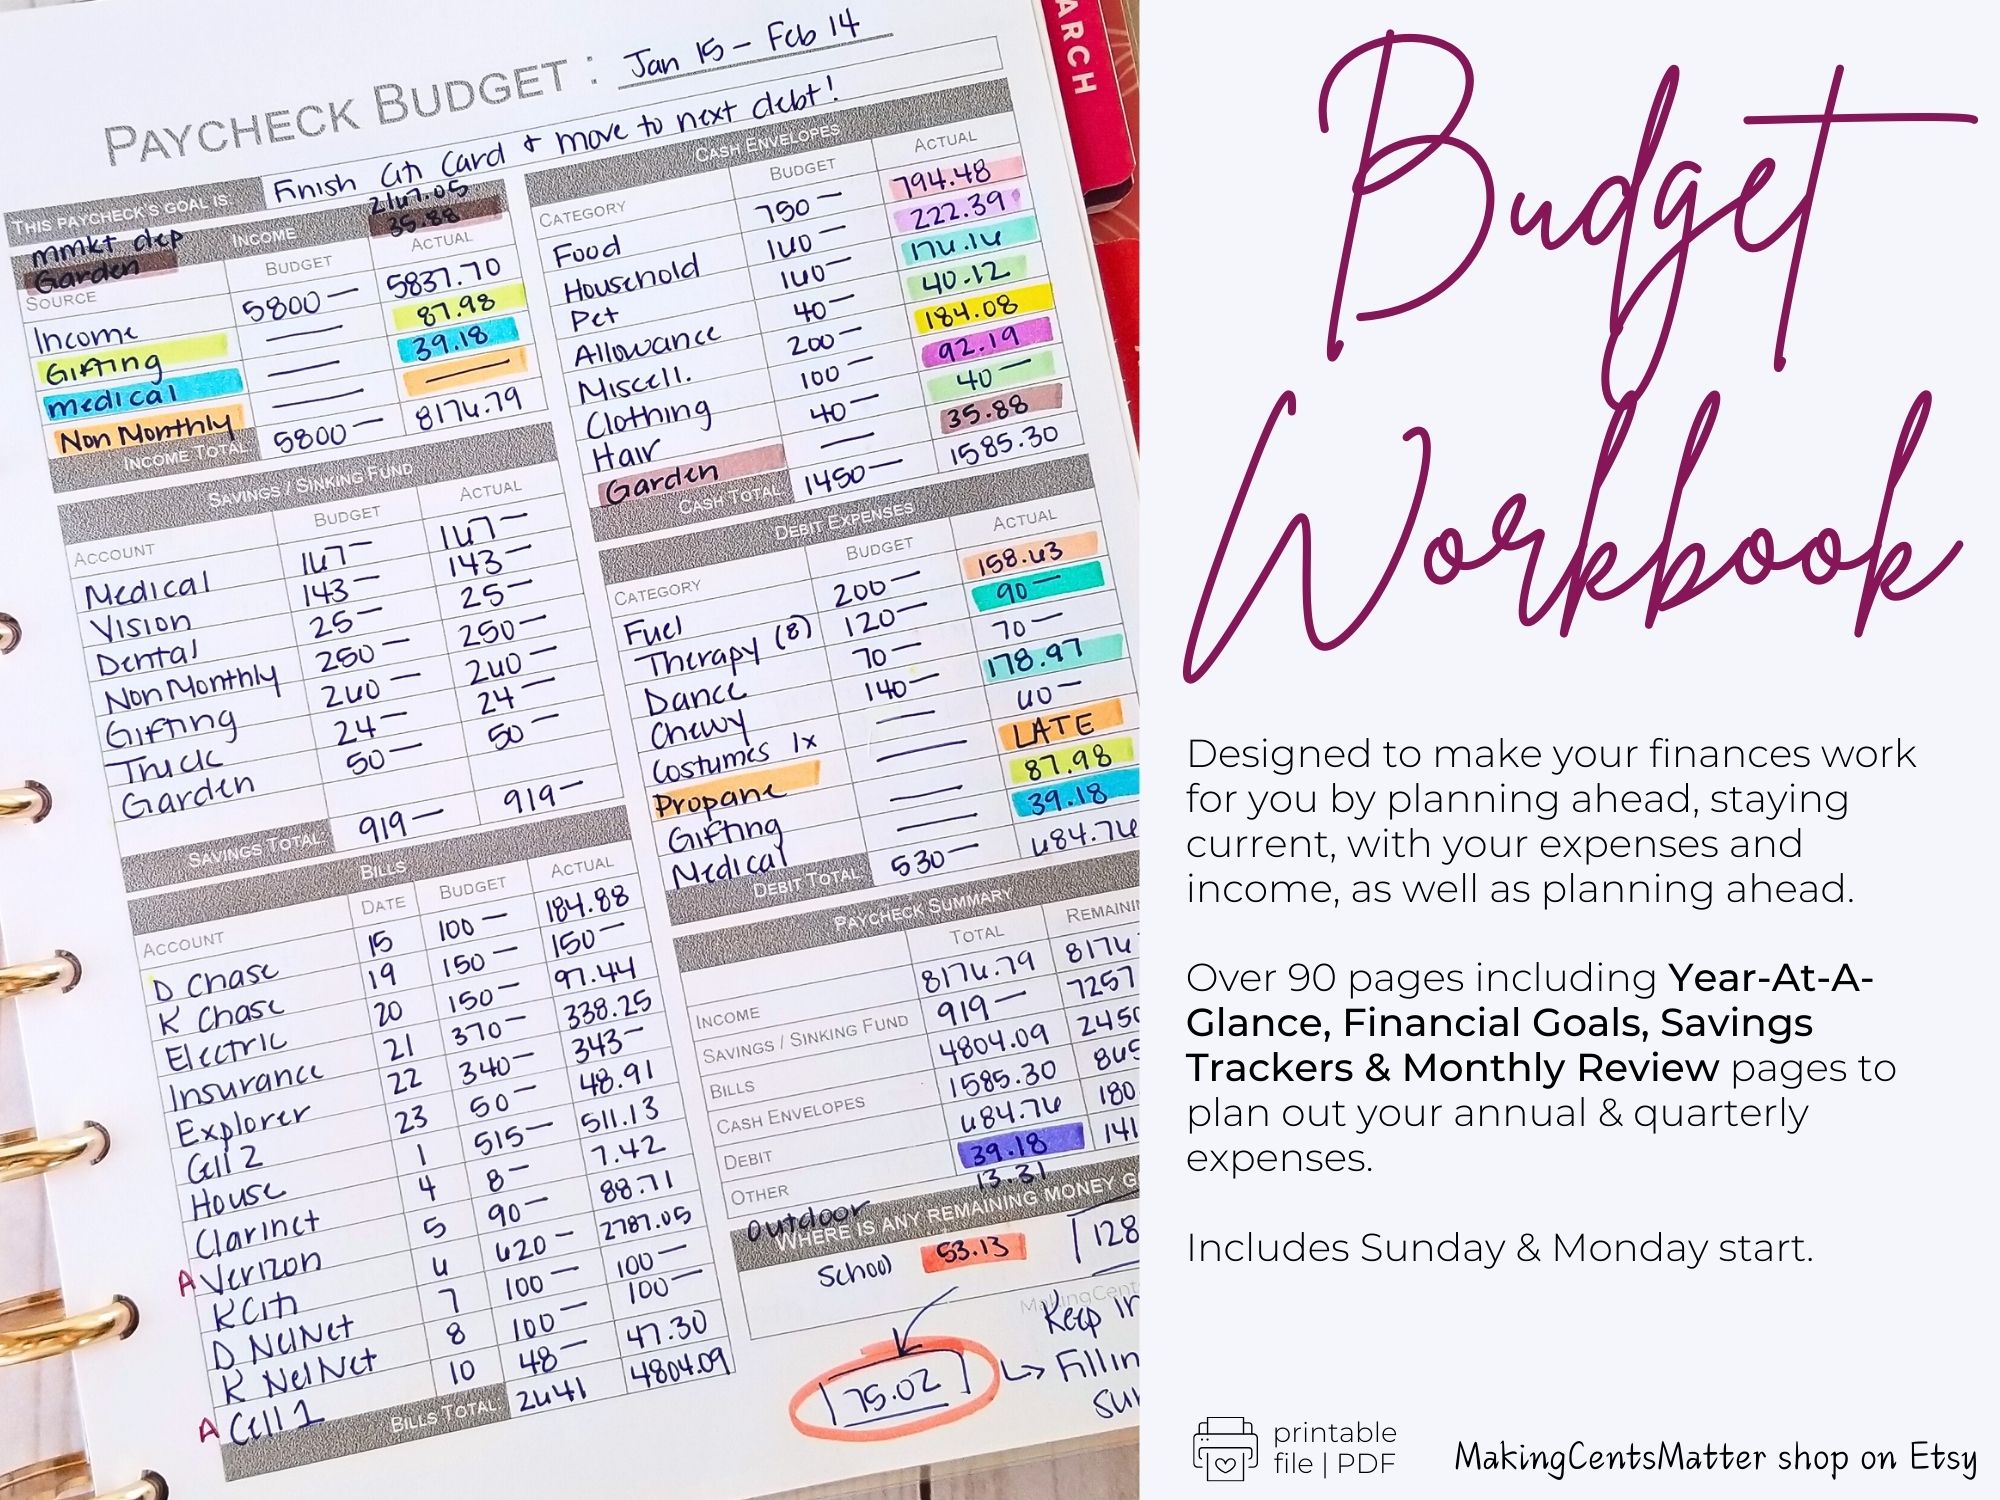 ARCH
PAYCHECK BUDGET : Jan 15 – Feb 14
THIS PAYCHECK'S GOAL IS: Finish Citi Card & move to next debt!
mmkt dep 2167.05
Garden INCOME 35.88
SOURCE BUDGET ACTUAL
Income 5800— 5837.70
Gifting — 87.98
medical — 39.18
Non Monthly — —
INCOME TOTAL 5800— 8176.79
SAVINGS / SINKING FUND
ACCOUNT BUDGET ACTUAL
Medical 167— 167—
Vision 143— 143—
Dental 25— 25—
Non Monthly 250— 250—
Gifting 260— 260—
Truck 24— 24—
Garden 50— 50—
SAVINGS TOTAL: 919— 919—
BILLS
ACCOUNT DATE BUDGET ACTUAL
D Chase 15 100— 184.88
K Chase 19 150— 150—
Electric 20 150— 97.44
Insurance 21 370— 338.25
Explorer 22 340— 343—
Cell 2 23 50— 48.91
House 1 515— 511.13
Clarinet 4 8— 7.42
A Verizon 5 90— 88.71
K Citi 6 620— 2787.05
D NelNet 7 100— 100—
K NelNet 8 100— 100—
A Cell 1 10 48— 47.30
BILLS TOTAL: 2641 4804.09
CASH ENVELOPES
CATEGORY BUDGET ACTUAL
Food 750— 794.48
Household 160— 222.39
Pet 160— 176.16
Allowance 40— 40.12
Miscell. 200— 184.08
Clothing 100— 92.19
Hair 40— 40—
Garden — 35.88
CASH TOTAL 1450— 1585.30
DEBIT EXPENSES
CATEGORY BUDGET ACTUAL
Fuel 200— 158.63
Therapy (8) 120— 90—
Dance 70— 70—
Chewy 140— 178.97
Costumes 1x — 60—
Propane — LATE
Gifting — 87.98
Medical — 39.18
DEBIT TOTAL 530— 684.76
PAYCHECK SUMMARY
TOTAL REMAINI
INCOME 8176.79 8176
SAVINGS / SINKING FUND 919— 7257
BILLS 4804.09
CASH ENVELOPES 1585.30
DEBIT 684.76 180
OTHER 39.18 141
outdoor 13.31
WHERE IS ANY REMAINING MONEY G
School 53.13 128
MakingCent
75.02
Keep in
Budget
Workbook
Designed to make your finances work
for you by planning ahead, staying
current, with your expenses and
income, as well as planning ahead.
Over 90 pages including Year-At-A-
Glance, Financial Goals, Savings
Trackers & Monthly Review pages to
plan out your annual & quarterly
expenses.
Includes Sunday & Monday start.
printable
file | PDF
MakingCentsMatter shop on Etsy